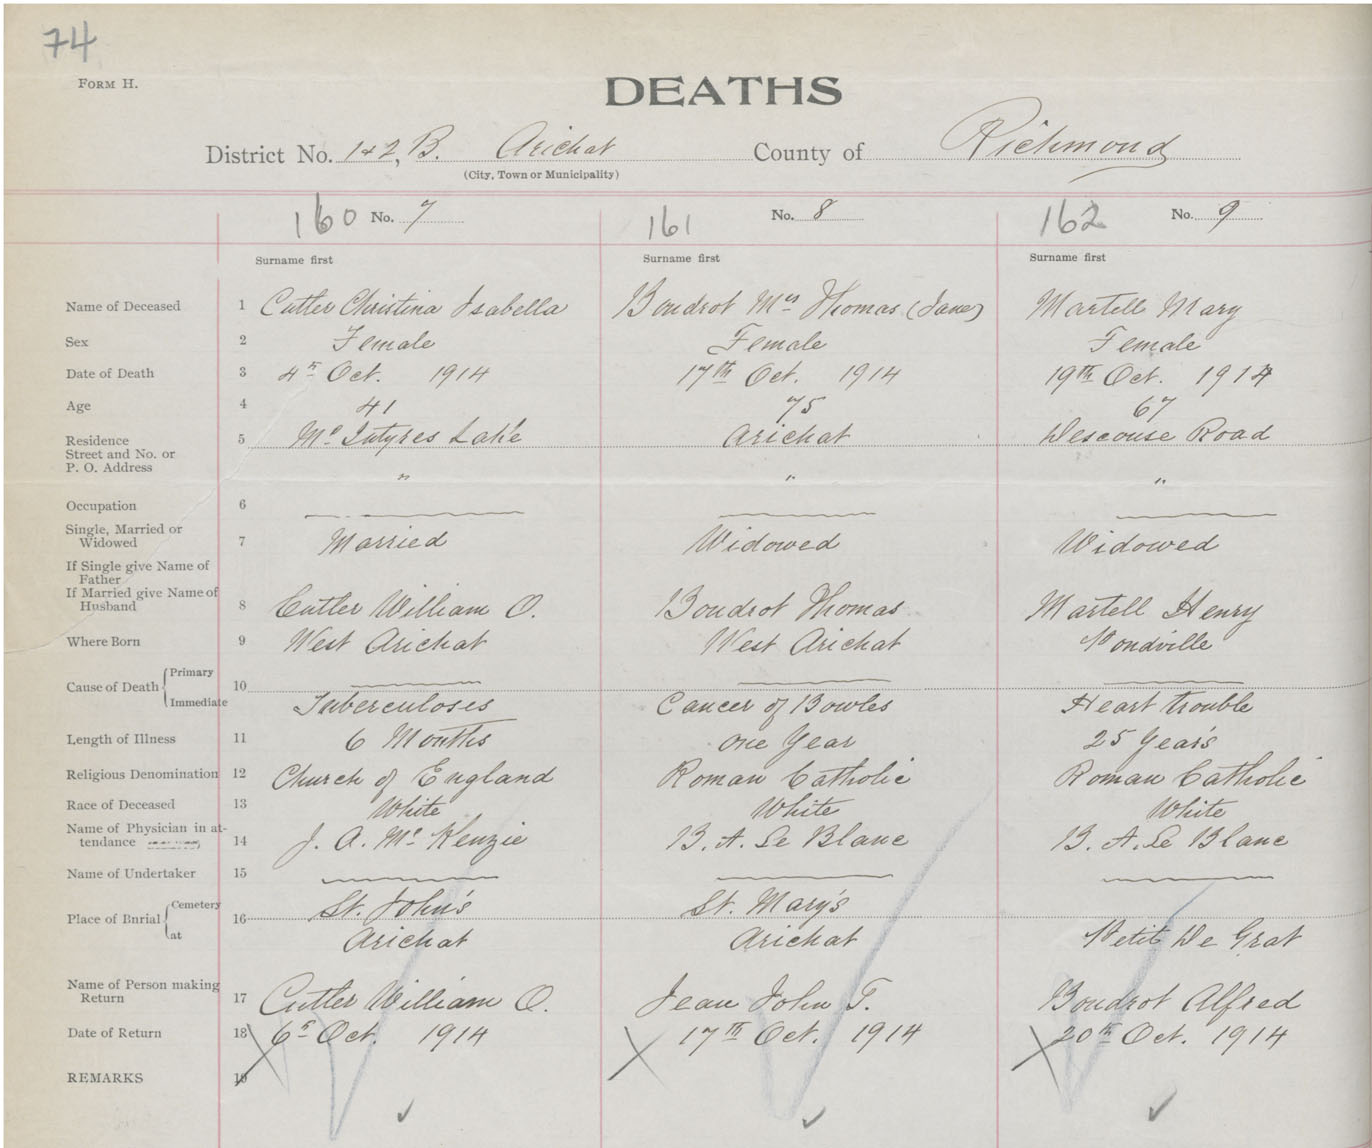 74
FORM H.
DEATHS
District No. 1+2, B. Arichat County of Richmond
(City, Town or Municipality)
160 No. 7 161 No. 8 162 No. 9
Surname first Surname first Surname first
Name of Deceased 1 Cutler Christina Isabella Boudrot Mrs Thomas (Jane) Martell Mary
Sex 2 Female Female Female
Date of Death 3 4th Oct. 1914 17th Oct. 1914 19th Oct. 1914
Age 4 41 75 67
Residence 5 Mc Intyres Lake Arichat Descouse Road
Street and No. or
P. O. Address " " "
Occupation 6
Single, Married or
Widowed 7 Married Widowed Widowed
If Single give Name of
Father
If Married give Name of
Husband 8 Cutler William O. Boudrot Thomas Martell Henry
Where Born 9 West Arichat West Arichat Pondville
Cause of Death { Primary 10
Immediate Tuberculoses Cancer of Bowles Heart trouble
Length of Illness 11 6 Months one Year 25 Year's
Religious Denomination 12 Church of England Roman Catholic Roman Catholic
Race of Deceased 13 White White White
Name of Physician in at-
tendance 14 J. A. Mc Kenzie B. A. Le Blanc B. A. Le Blanc
Name of Undertaker 15
Place of Burial { Cemetery 16 St. John's St. Mary's
at Arichat Arichat Petit De Grat
Name of Person making
Return 17 Cutler William O. Jean John T. Boudrot Alfred
Date of Return 18 6th Oct. 1914 17th Oct. 1914 20th Oct. 1914
REMARKS 19